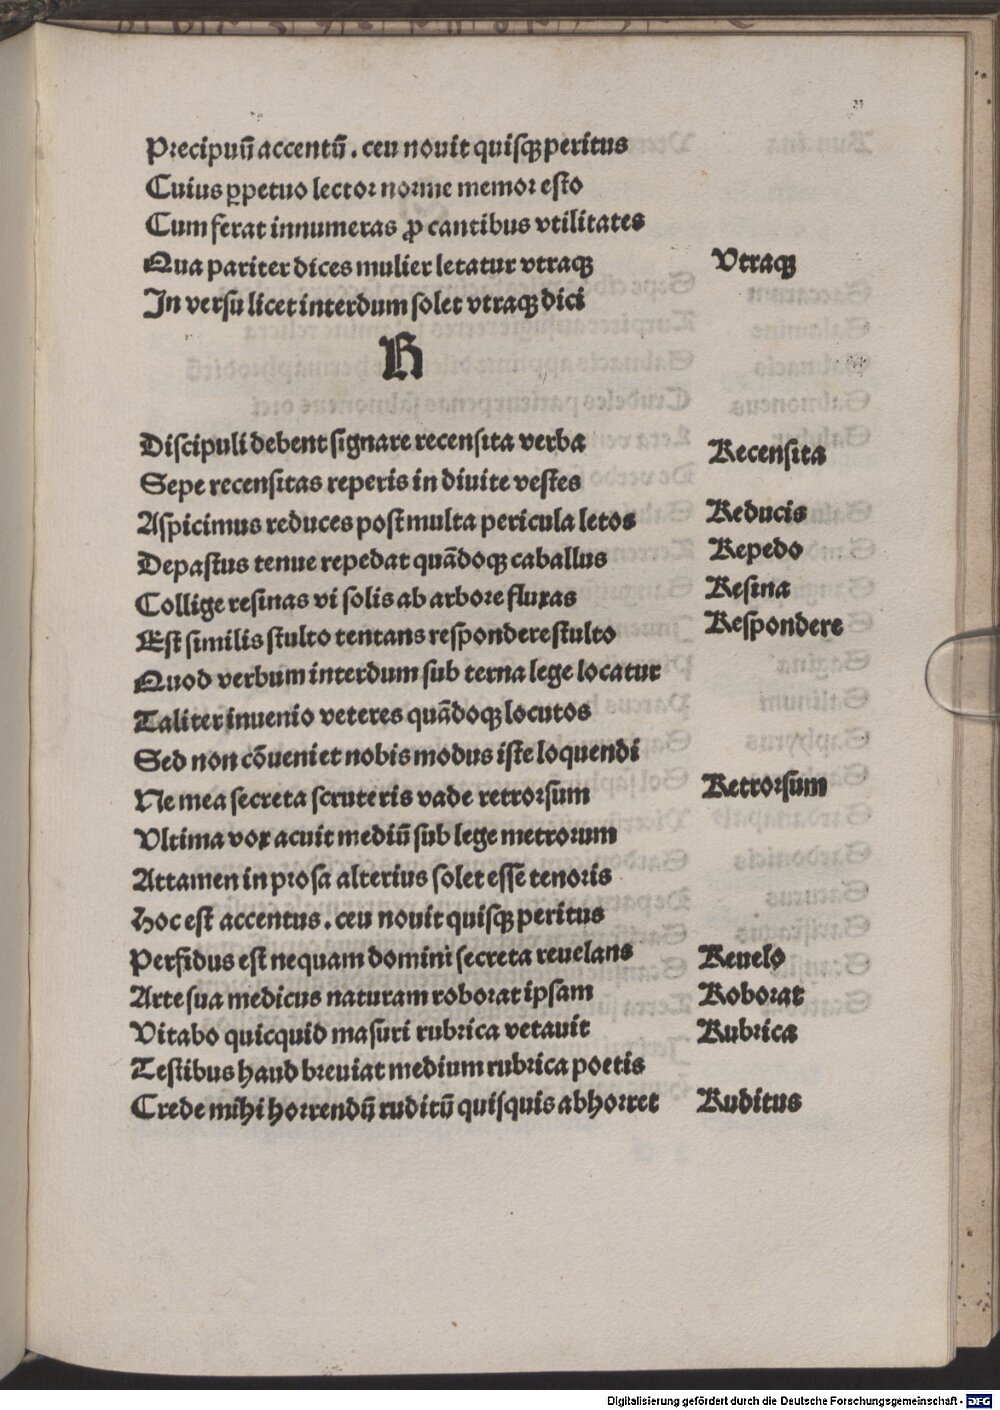 Precipuū accentū. ceu nouit quisqꝫ peritus
Cuius ꝑpetuo lector norme memor esto
Cum ferat innumeras ꝓ cantibus vtilitates
Qua pariter dices mulier letatur vtraqꝫ Vtraqꝫ
In versu licet interdum solet vtraqꝫ dici
R
Discipuli debent signare recensita verba Recensita
Sepe recensitas reperis in diuite vestes
Aspicimus reduces post multa pericula letos Reducis
Depastus tenue repedat quādoqꝫ caballus Repedo
Collige resinas vi solis ab arbore fluxas Resina
Est similis stulto tentans respondere stulto Respondere
Quod verbum interdum sub terna lege locatur
Taliter inuenio veteres quādoqꝫ locutos
Sed non cōueniet nobis modus iste loquendi
Ne mea secreta scruteris vade retrorsum Retrorsum
Vltima vox acuit mediū sub lege metrorum
Attamen in prosa alterius solet esse tenoris
Hoc est accentus. ceu nouit quisqꝫ peritus
Perfidus est nequam domini secreta reuelans Reuelo
Arte sua medicus naturam roborat ipsam Roborat
Vitabo quicquid masuri rubrica vetauit Rubrica
Testibus haud breuiat medium rubrica poetis
Crede mihi horrendū ruditū quisquis abhorret Ruditus
Digitalisierung gefördert durch die Deutsche Forschungsgemeinschaft - DFG